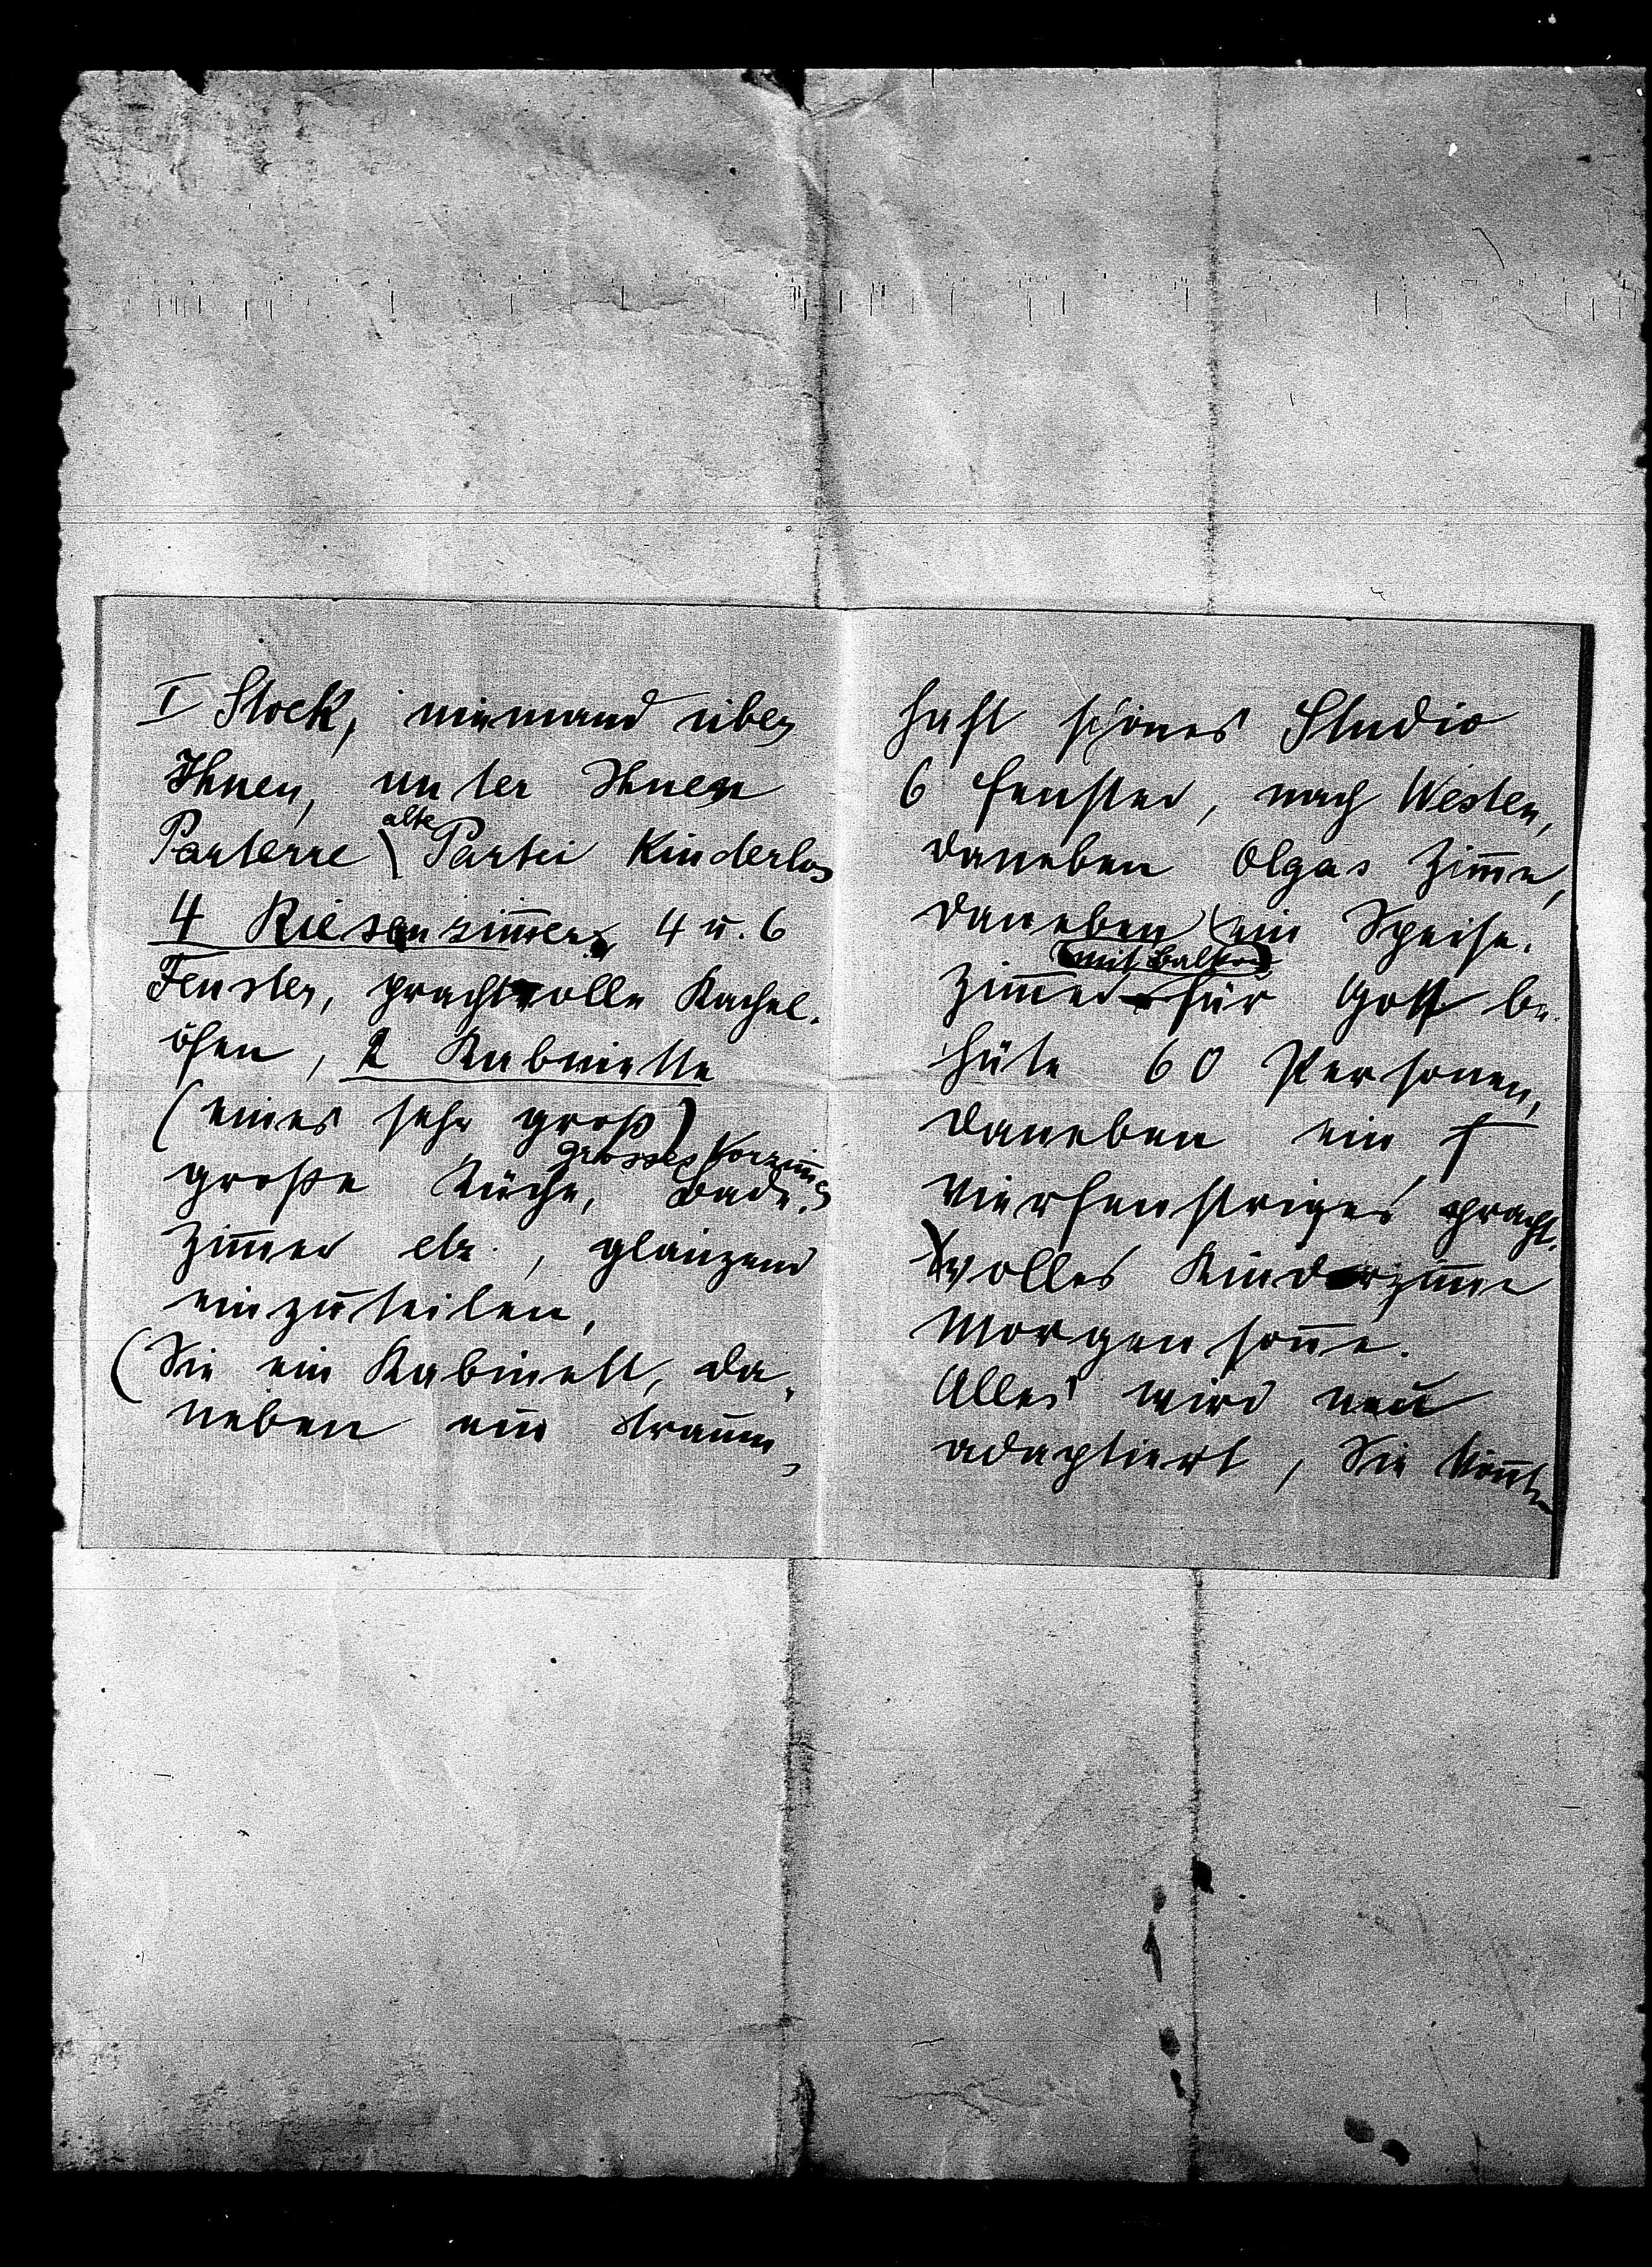 I Stock, niemand über
Ihnen, unter Ihnen
alte
Parterre Partei Kinderlos
4 Riesenzim̅er, 4 u. 6
Fenster, prachtvolle Kachel-
öfen, 2 Kabinette
(eines sehr groß)
grosses Vorzim̅er
große Küche, Bade-
zim̅er etz., glänzend
einzuteilen,
(Sie ein Kabinett, da-
neben ein traum-
haft schönes Studio
6 Fenster, nach Westen,
daneben Olgas Zim̅er,
daneben ein Speise-
mit Balkon
zim̅er für Gott be-
hüte 60 Personen,
daneben ein
vierfenstriges pracht-
volles Kinderzim̅er
Morgenson̅e.
Alles wird neu
adaptiert, Sie kön̅ten